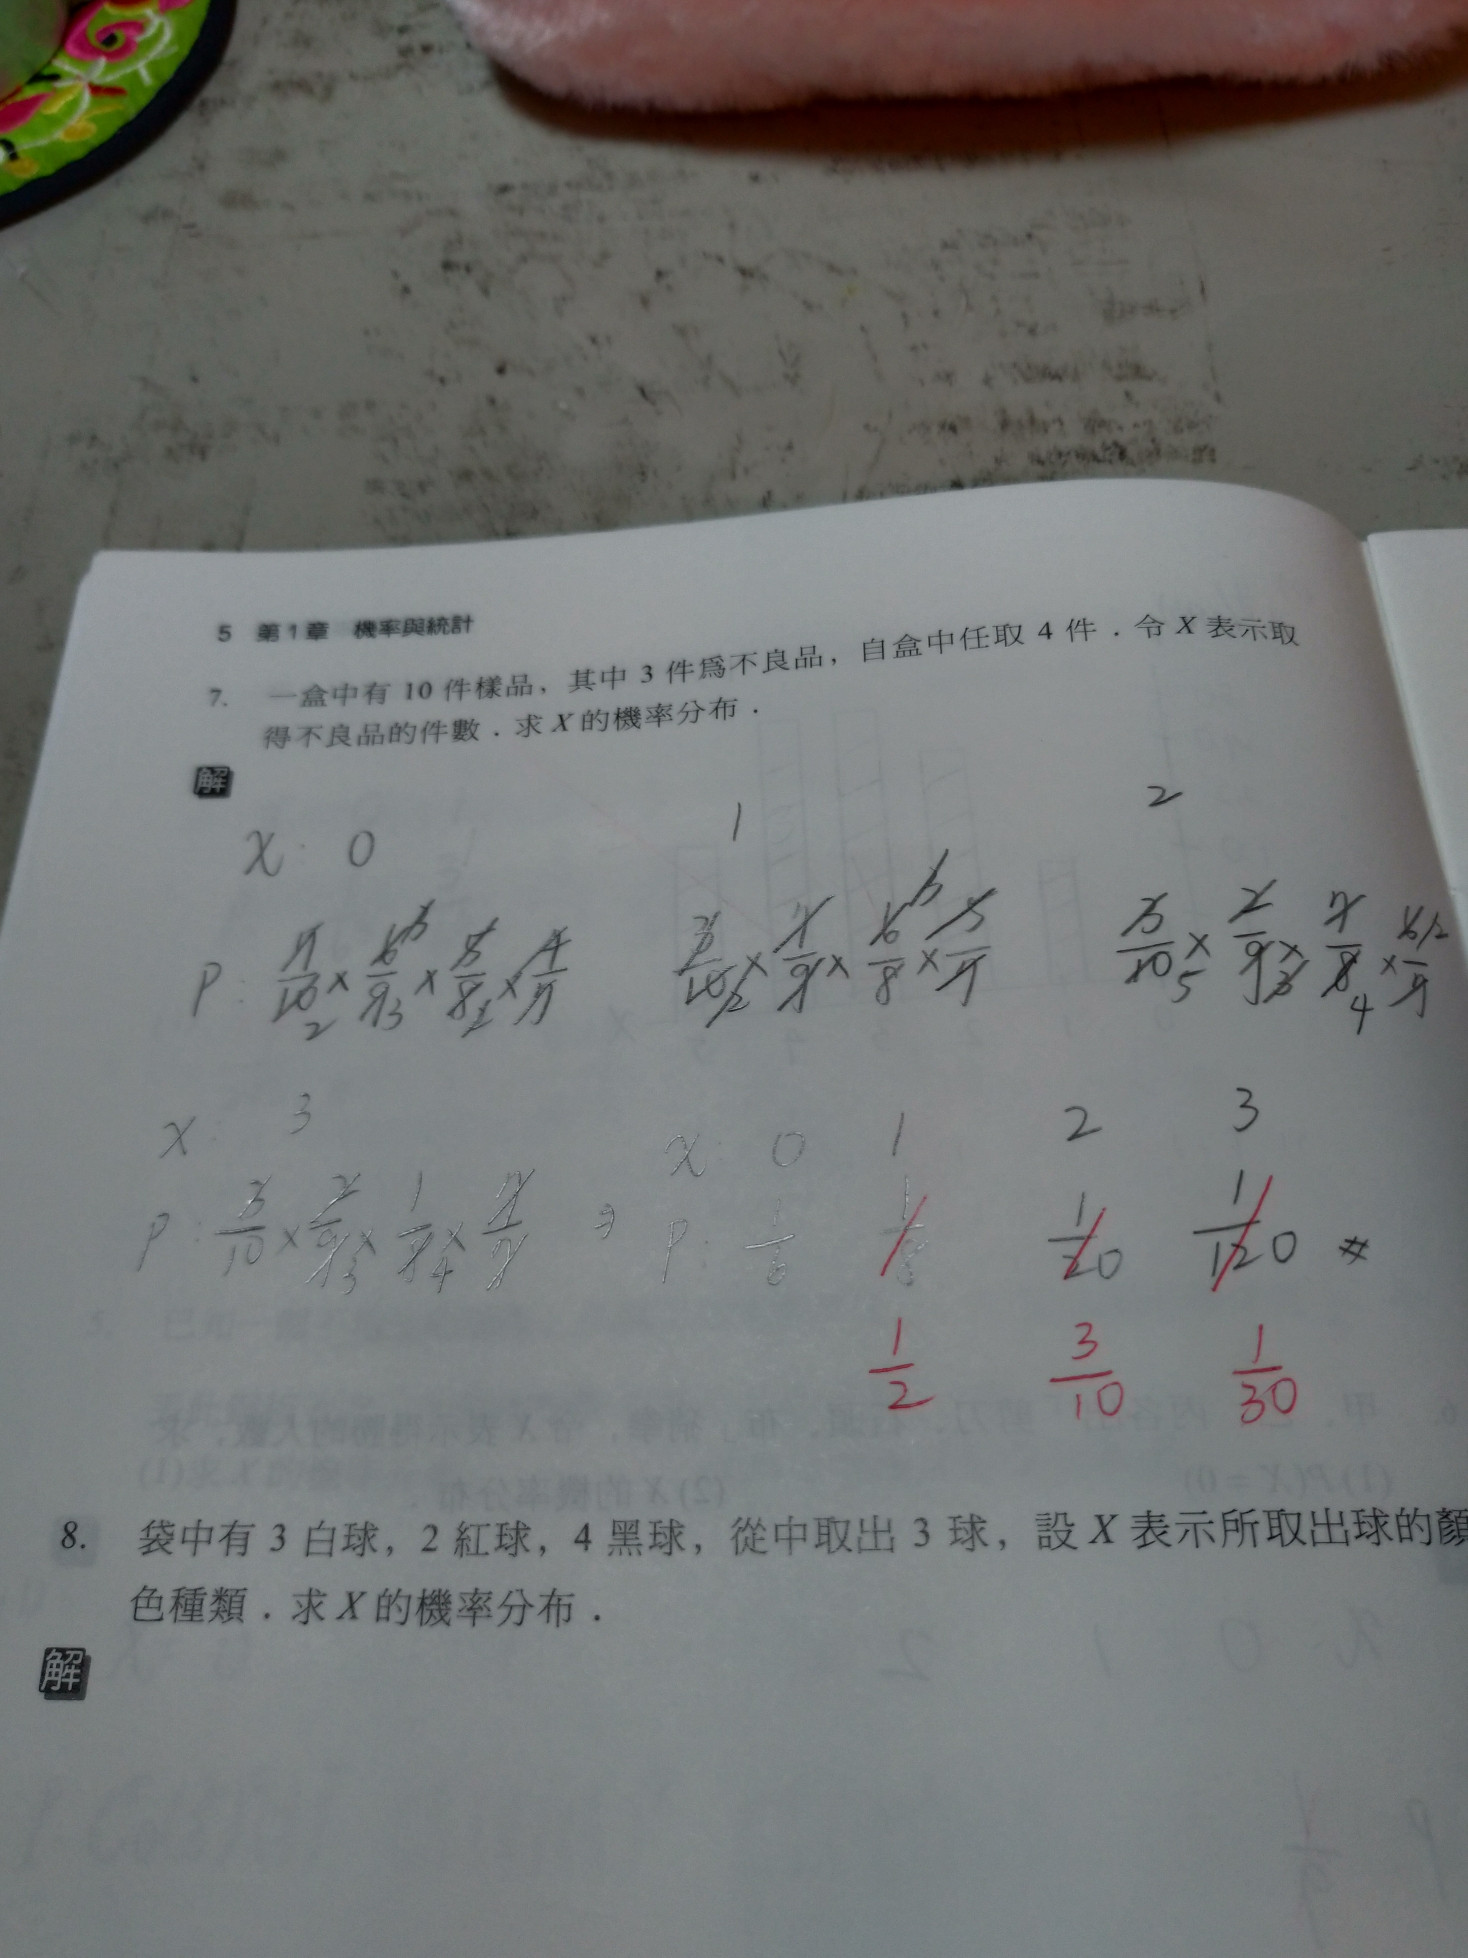 5 第1章 機率與統計
7. 一盒中有 10 件樣品，其中 3 件爲不良品，自盒中任取 4 件．令 X 表示取
得不良品的件數．求 X 的機率分布．
解
X: 0 1 2
P: 7/10 × 6/9 × 5/8 × 4/7 3/10 × 7/9 × 6/8 × 5/7 3/10 × 2/9 × 7/8 × 6/7
X: 3
P: 3/10 × 2/9 × 1/8 × 7/7
⇒ X: 0 1 2 3
P: 1/6 1/8 1/20 1/120 #
1/2 3/10 1/30
8. 袋中有 3 白球，2 紅球，4 黑球，從中取出 3 球，設 X 表示所取出球的顏
色種類．求 X 的機率分布．
解